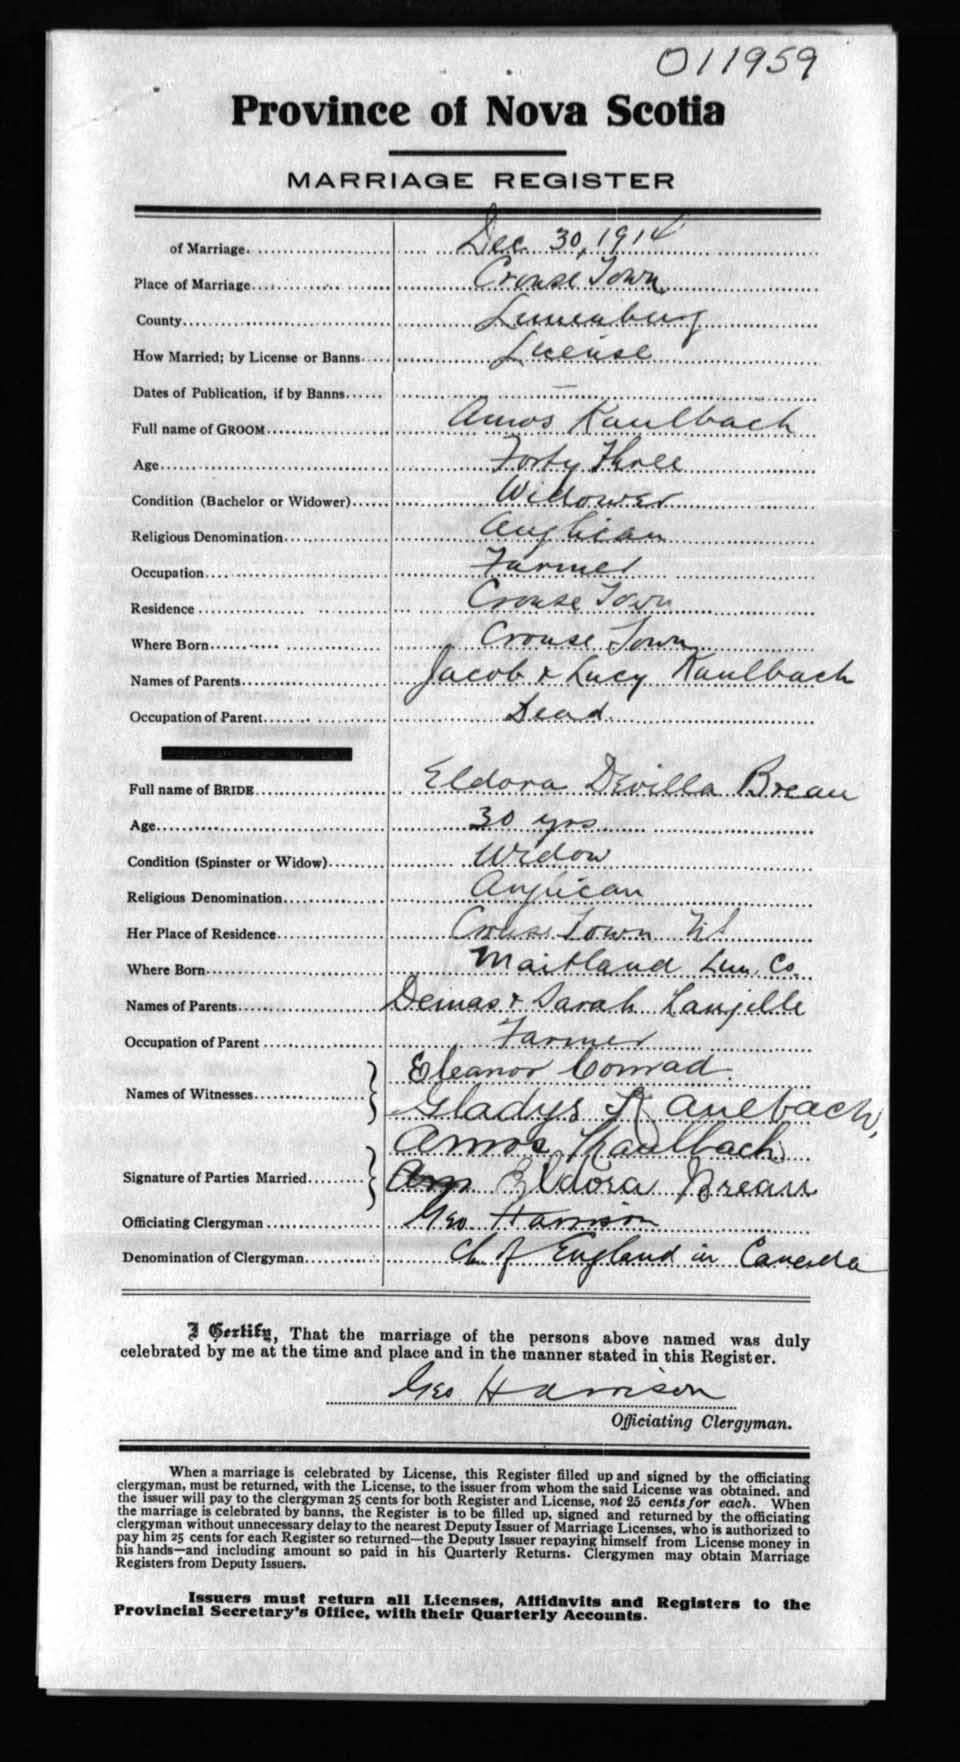 011959
Province of Nova Scotia
MARRIAGE REGISTER
of Marriage Dec 30, 1914
Place of Marriage Crouse Town
County Lunenburg
How Married; by License or Banns License
Dates of Publication, if by Banns —
Full name of GROOM Amos Kaulbach
Age Forty Three
Condition (Bachelor or Widower) Widower
Religious Denomination Anglican
Occupation Farmer
Residence Crouse Town
Where Born Crouse Town
Names of Parents Jacob & Lucy Kaulbach
Occupation of Parent Dead
Full name of BRIDE Eldora Devilla Breau
Age 30 yrs
Condition (Spinster or Widow) Widow
Religious Denomination Anglican
Her Place of Residence Crouse Town NS
Where Born Maitland Lun. Co.
Names of Parents Demas & Sarah Langille
Occupation of Parent Farmer
Eleanor Conrad
Names of Witnesses
Gladys Kauelbach,
Amos Kaulbach
Signature of Parties Married Eldora Breau
Officiating Clergyman Geo Harrison
Denomination of Clergyman Ch of England in Canada
I Certify, That the marriage of the persons above named was duly
celebrated by me at the time and place and in the manner stated in this Register.
Geo Harrison
Officiating Clergyman.
When a marriage is celebrated by License, this Register filled up and signed by the officiating
clergyman, must be returned, with the License, to the issuer from whom the said License was obtained, and
the issuer will pay to the clergyman 25 cents for both Register and License, not 25 cents for each. When
the marriage is celebrated by banns, the Register is to be filled up, signed and returned by the officiating
clergyman without unnecessary delay to the nearest Deputy Issuer of Marriage Licenses, who is authorized to
pay him 25 cents for each Register so returned—the Deputy Issuer repaying himself from License money in
his hands—and including amount so paid in his Quarterly Returns. Clergymen may obtain Marriage
Registers from Deputy Issuers.
Issuers must return all Licenses, Affidavits and Registers to the
Provincial Secretary's Office, with their Quarterly Accounts.